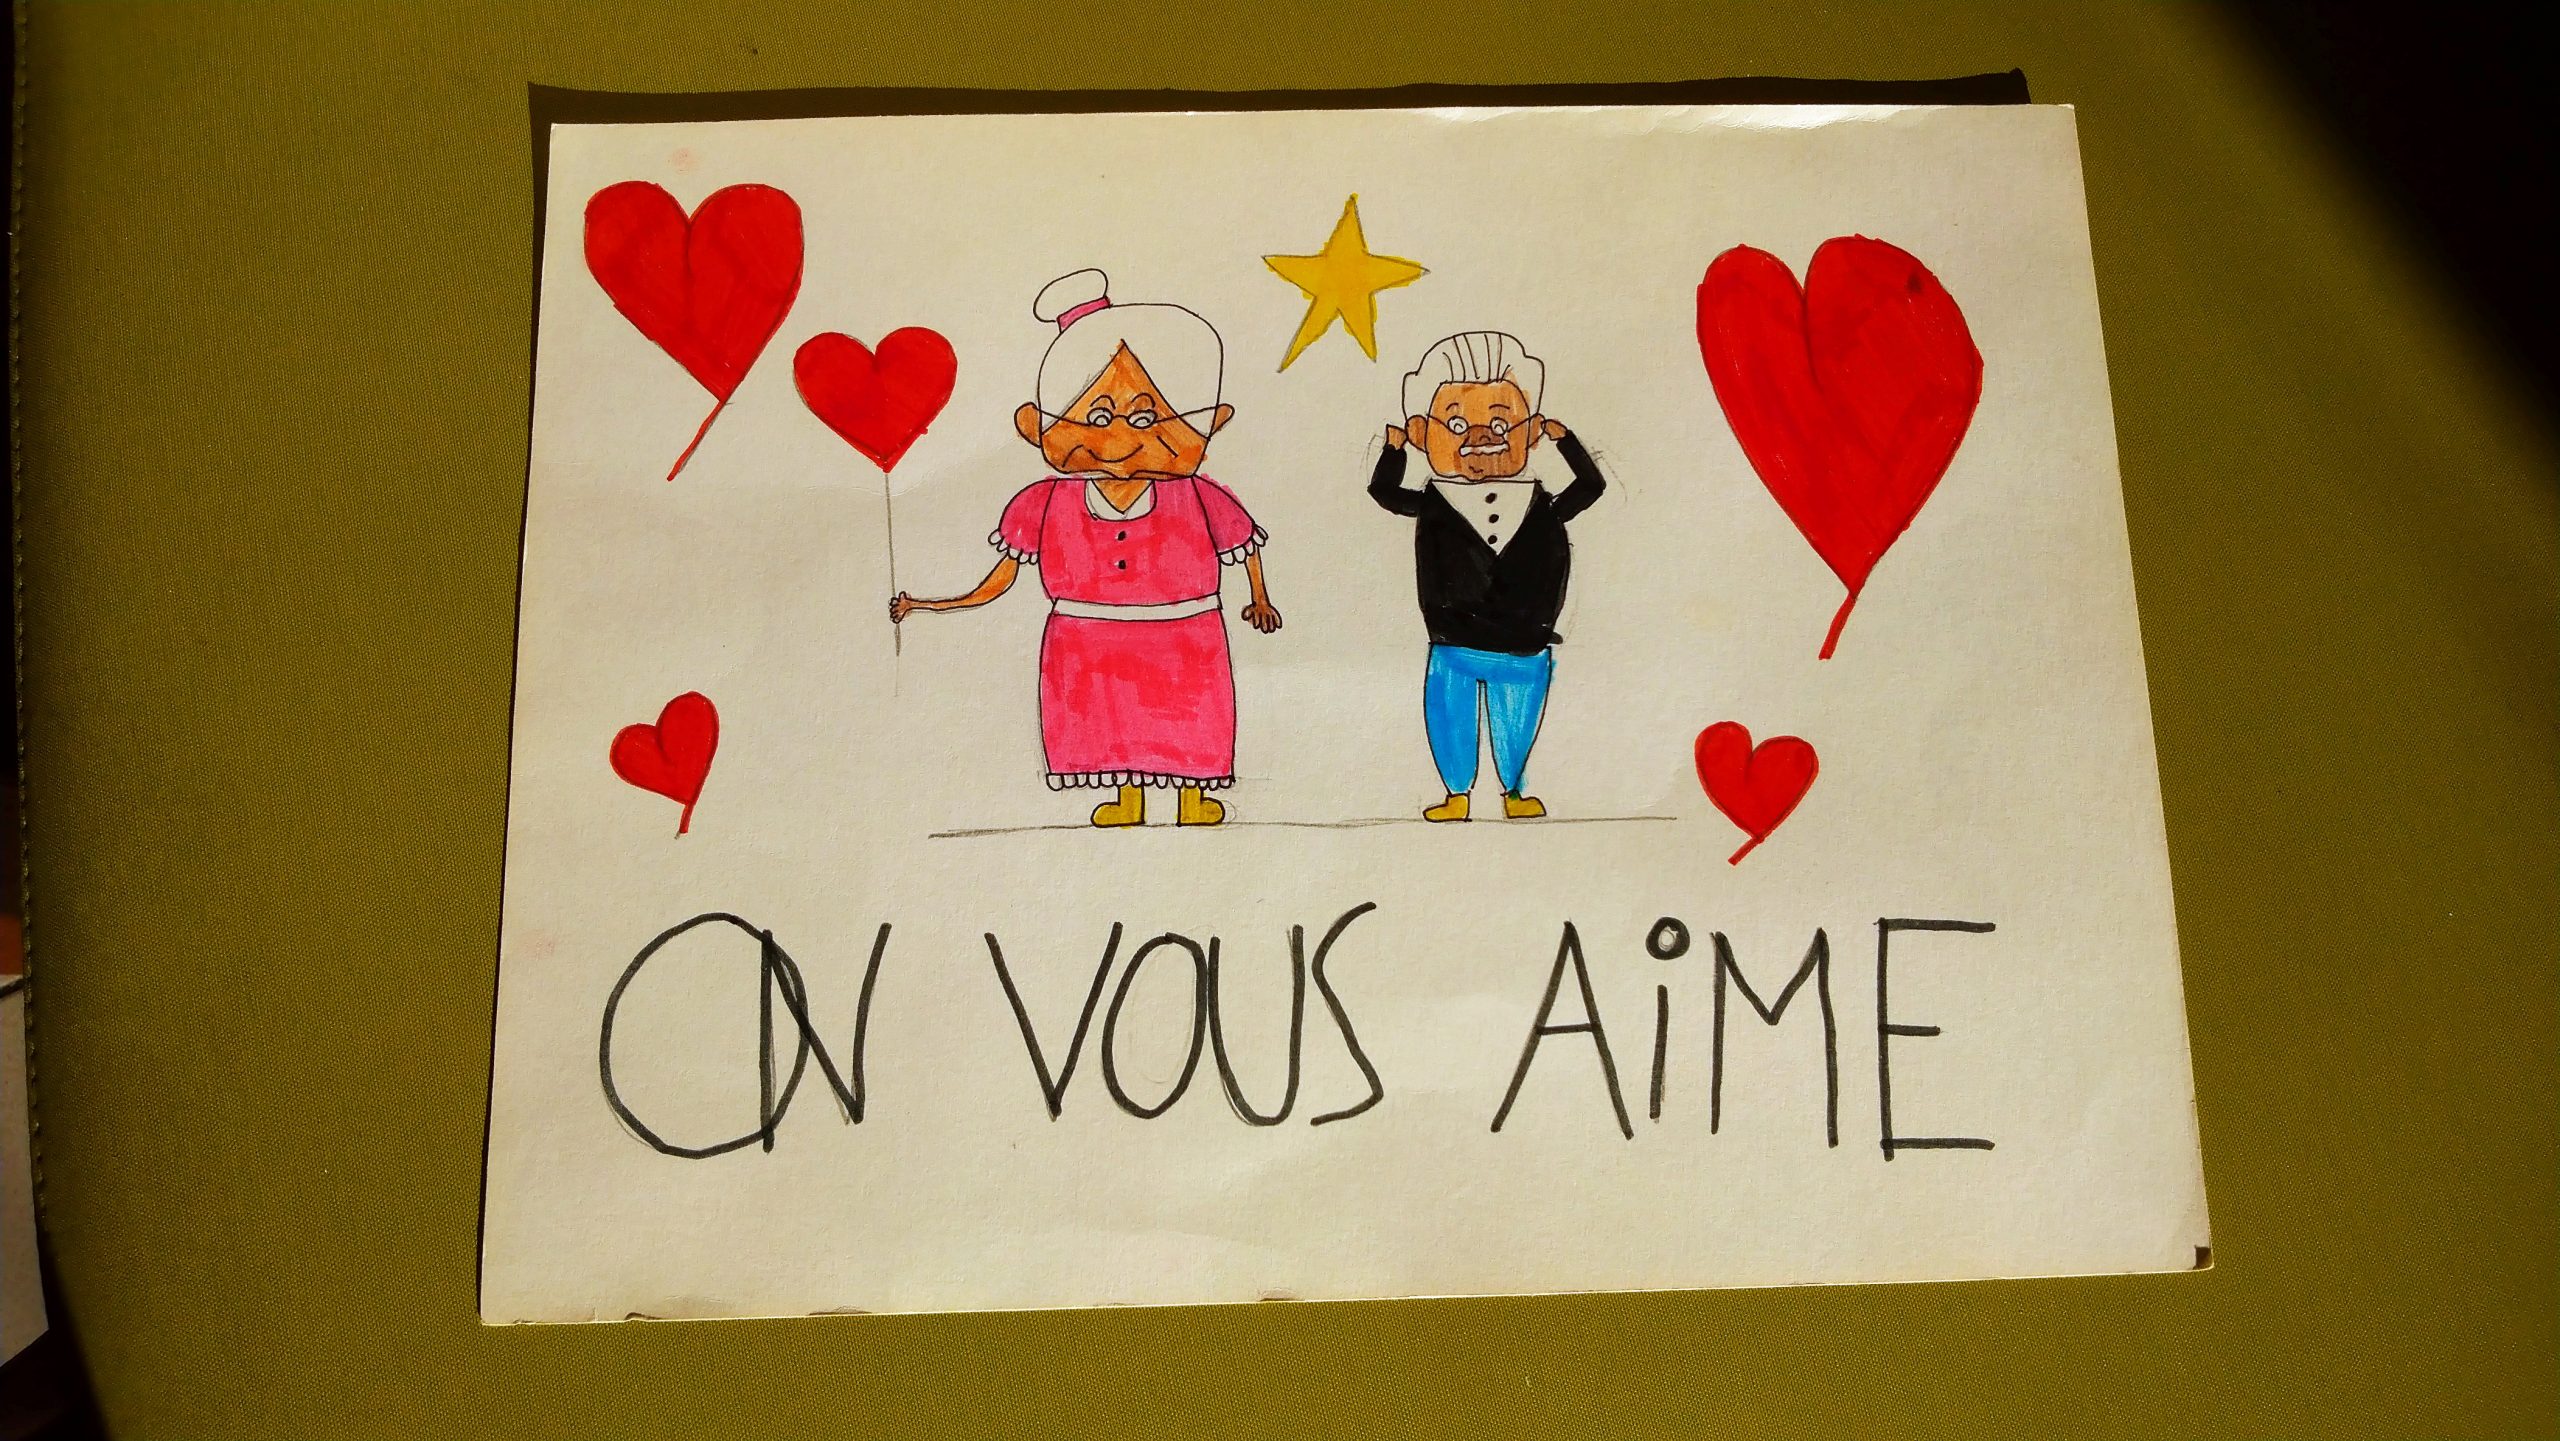 ON VOUS AiME